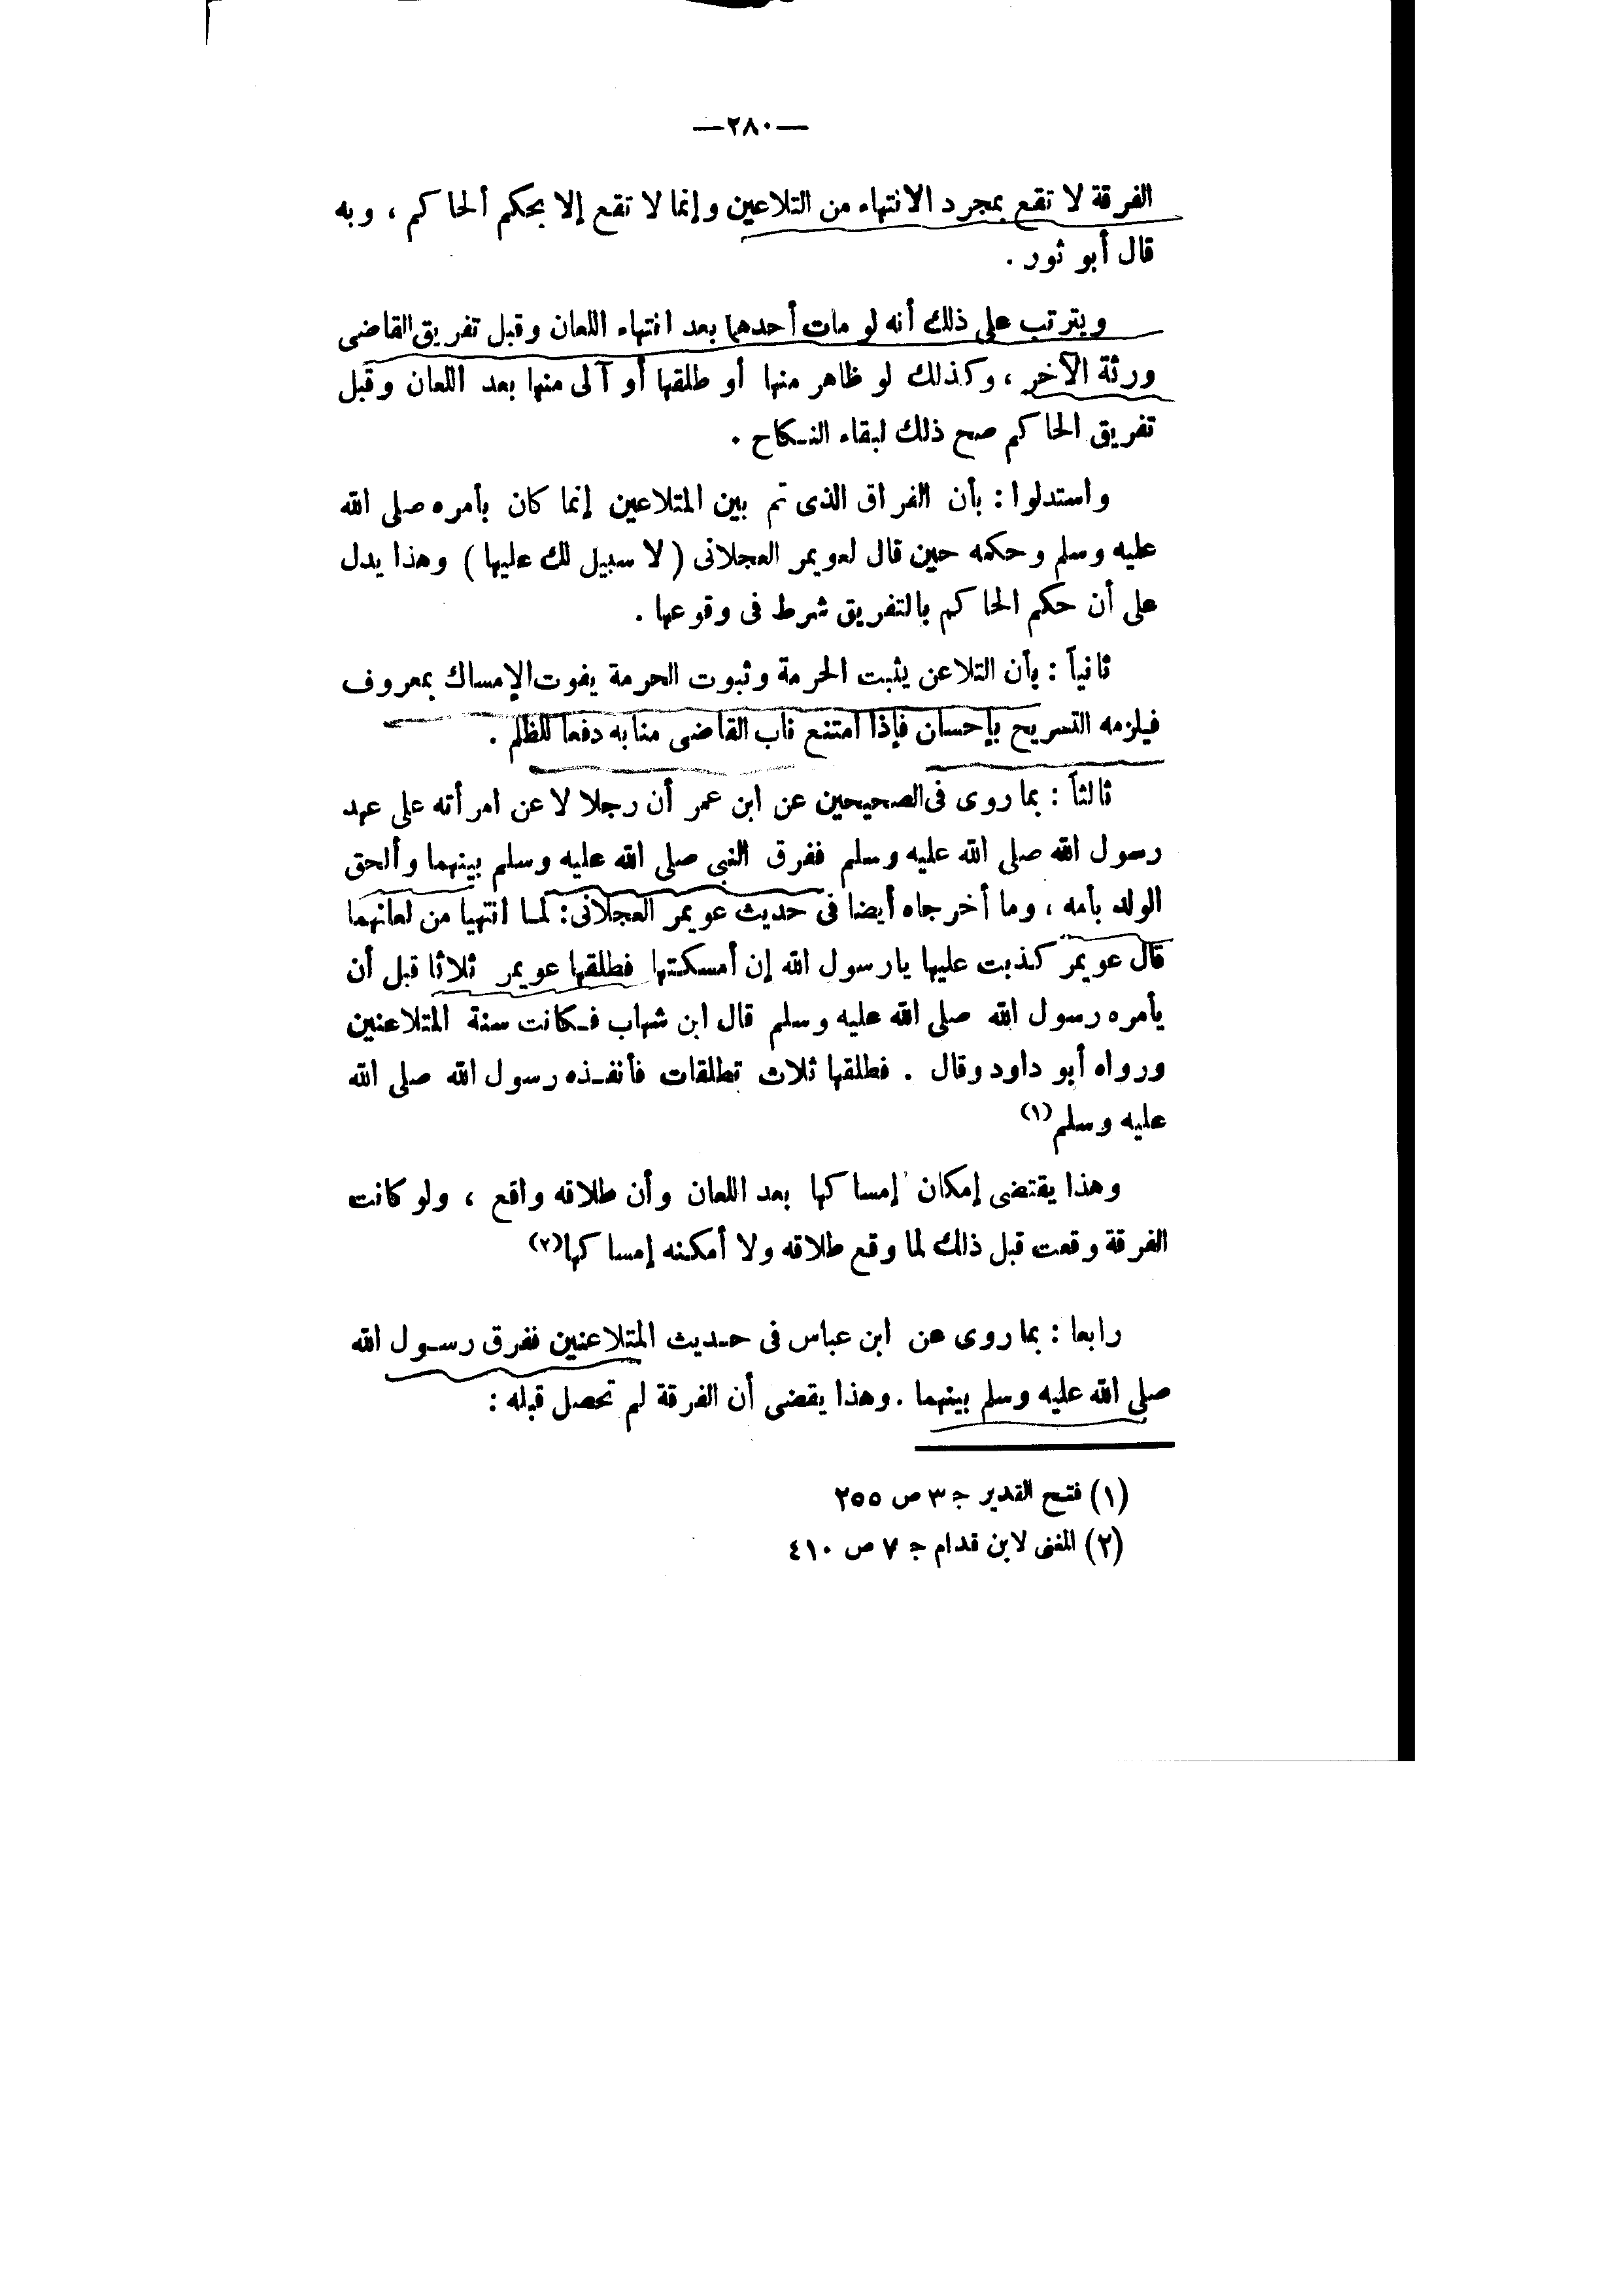 —٢٨٠—
الفرقة لا تقع بمجرد الانتهاء من التلاعين وإنما لا تقع إلا بحكم ألحاكم ، وبه
قال أبو ثور .
ويترتب على ذلك أنه لو مات أحدهما بعد انتهاء اللعان وقبل تفريق القاضى
ورثة الآخر ، وكذلك لو ظاهر منها أو طلقها أو آلى منها بعد اللعان وقبل
تفريق الحاكم صح ذلك لبقاء النكاح .
واستدلوا : بأن الفراق الذى تم بين المتلاعين إنما كان بأمره صلى الله
عليه وسلم وحكمه حين قال لعويمر العجلانى ( لا سبيل لك عليها ) وهذا يدل
على أن حكم الحاكم بالتفريق شرط فى وقوعها .
ثانياً : بأن التلاعن يثبت الحرمة وثبوت الحرمة يفوت الإمساك بمعروف
فيلزمه التسريح بإحسان فإذا امتنع ناب القاضى منابه دفعا للظلم .
ثالثاً : بما روى فى الصحيحين عن ابن عمر أن رجلا لاعن امرأته على عهد
رسول الله صلى الله عليه وسلم ففرق النبى صلى الله عليه وسلم بينهما وألحق
الولد بأمه ، وما أخرجاه أيضا فى حديث عويمر العجلانى : لما انتهيا من لعانهما
قال عويمر كذبت عليها يارسول الله إن أمسكتها فطلقها عويمر ثلاثا قبل أن
يأمره رسول الله صلى الله عليه وسلم قال ابن شهاب فكانت سنة المتلاعنين
ورواه أبو داود وقال . فطلقها ثلاث تطلقات فأنفذه رسول الله صلى الله
عليه وسلم (١)
وهذا يقتضى إمكان إمساكها بعد اللعان وأن طلاقه واقع ، ولو كانت
الفرقة وقعت قبل ذلك لما وقع طلاقه ولا أمكنه إمساكها (٢)
رابعا : بما روى عن ابن عباس فى حديث المتلاعنين ففرق رسول الله
صلى الله عليه وسلم بينهما . وهذا يقضى أن الفرقة لم تحصل قبله :
(١) فتح القدير ج ٣ ص ٢٥٥
(٢) المغنى لابن قدام ج ٧ ص ٤١٠